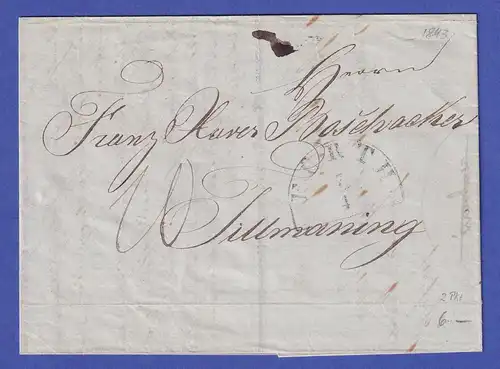 1843
Herrn
Franz Xaver Boschacker
Tittmaning
2 Pkt
6.—